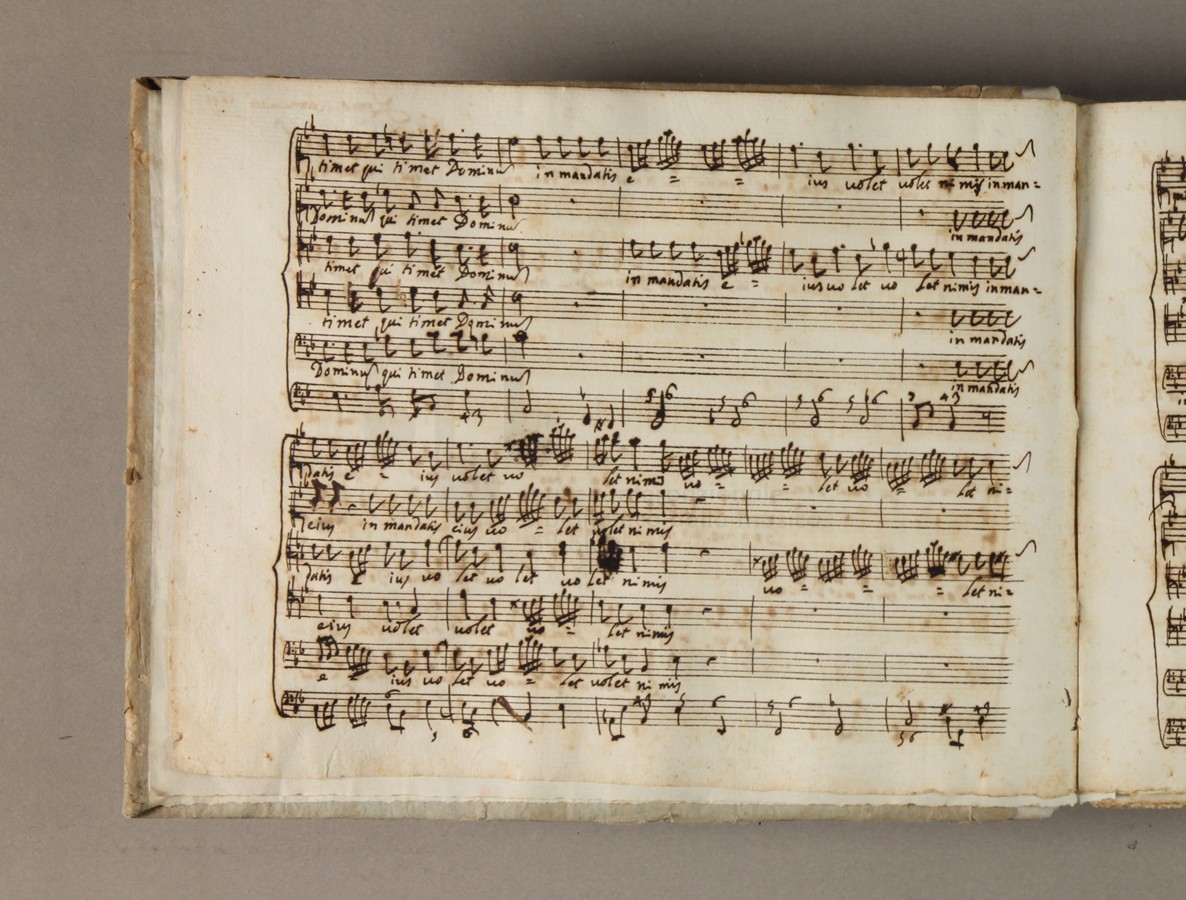 timet qui timet Dominus in mandatis e = = ius volet volet nimis in man=
Dominus qui timet Dominus. in mandatis
timet qui timet Dominus in mandatis e = ius vo let vo let nimis in man=
timet qui timet Dominus in mandatis
Dominus qui timet Dominus in mandatis
datis e = ius volet vo let nimis vo = = let vo = let ni=
eius in mandatis eius vo = let volet nimis
datis e ius vo let vo let vo let nimis vo = = = let ni=
eius volet volet vo = let nimis
e = ius vo let vo = let volet nimis